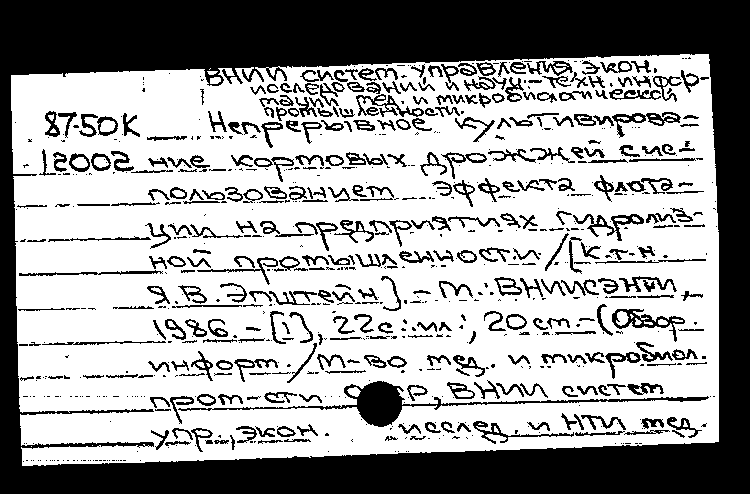 ВНИИ систем. управления, экон.
исследований и науч.-техн. инфор-
мации мед. и микробиологической
промышленности.
87-50К Непрерывное культивирова-
12005 ние кормовых дрожжей с ис-
пользованием эффекта флота-
ции на предприятиях гидролиз-
ной промышленности / [К.т.н.
Я.В. Эпштейн]. - М.: ВНИИСЭНТИ,
1986. - [1], 22 с.: ил.; 20 см. - (Обзор.
информ. / М-во мед. и микробиол.
пром-сти СССР, ВНИИ систем
упр., экон. исслед. и НТИ мед.